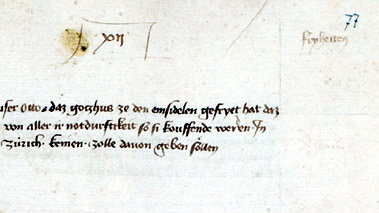 77
xıı
fryheiten
iser Otto daz gotzhus ze den einsidelen gefryet hat daz
von aller ir notdurftkeit so si kouffende werden. In
Zürich. keinen. zolle davon geben söllen